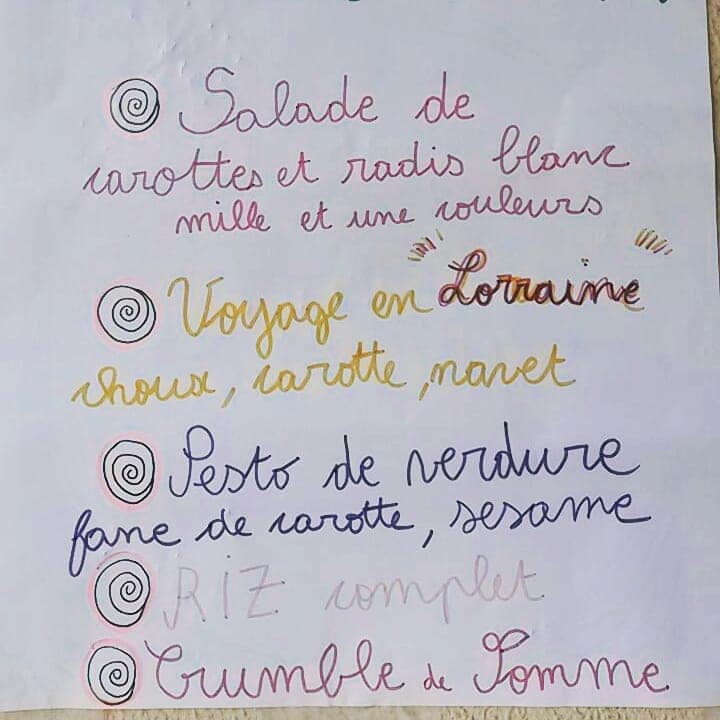 Salade de
carottes et radis blanc
mille et une couleurs
Voyage en "Lorraine"
choux, carotte, navet
Pesto de verdure
fane de carotte, sesame
RIZ complet
Crumble de Pomme